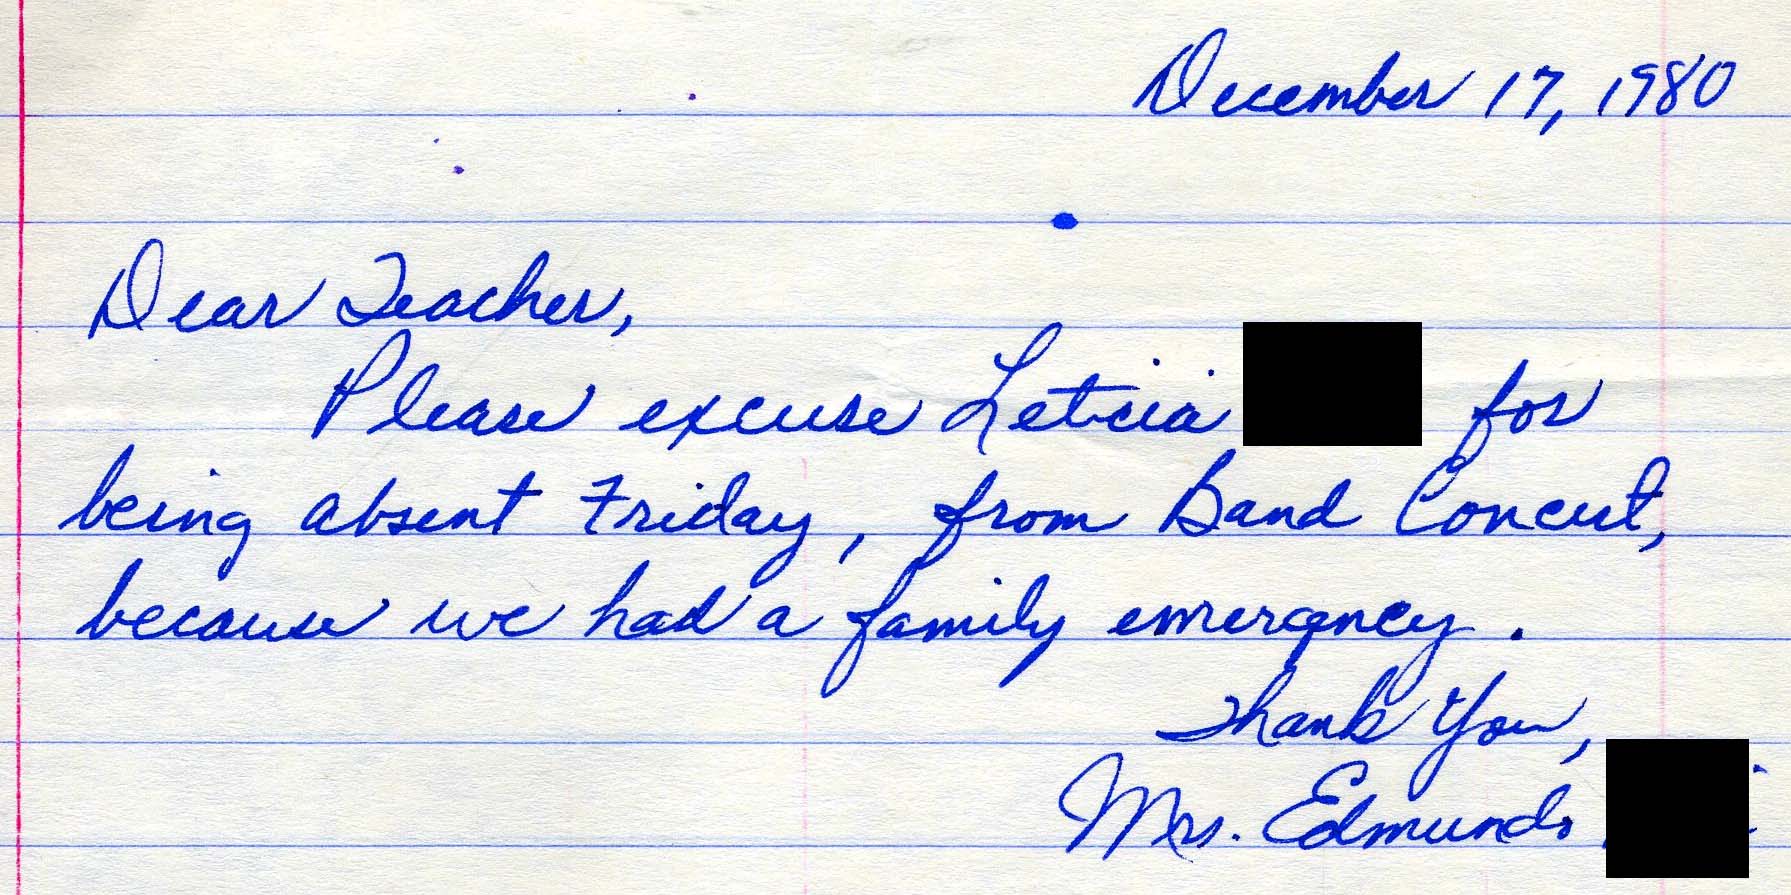 December 17, 1980
Dear Teacher,
Please excuse Leticia for
being absent Friday, from Band Concert,
because we had a family emergency.
Thank You,
Mrs. Edmundo